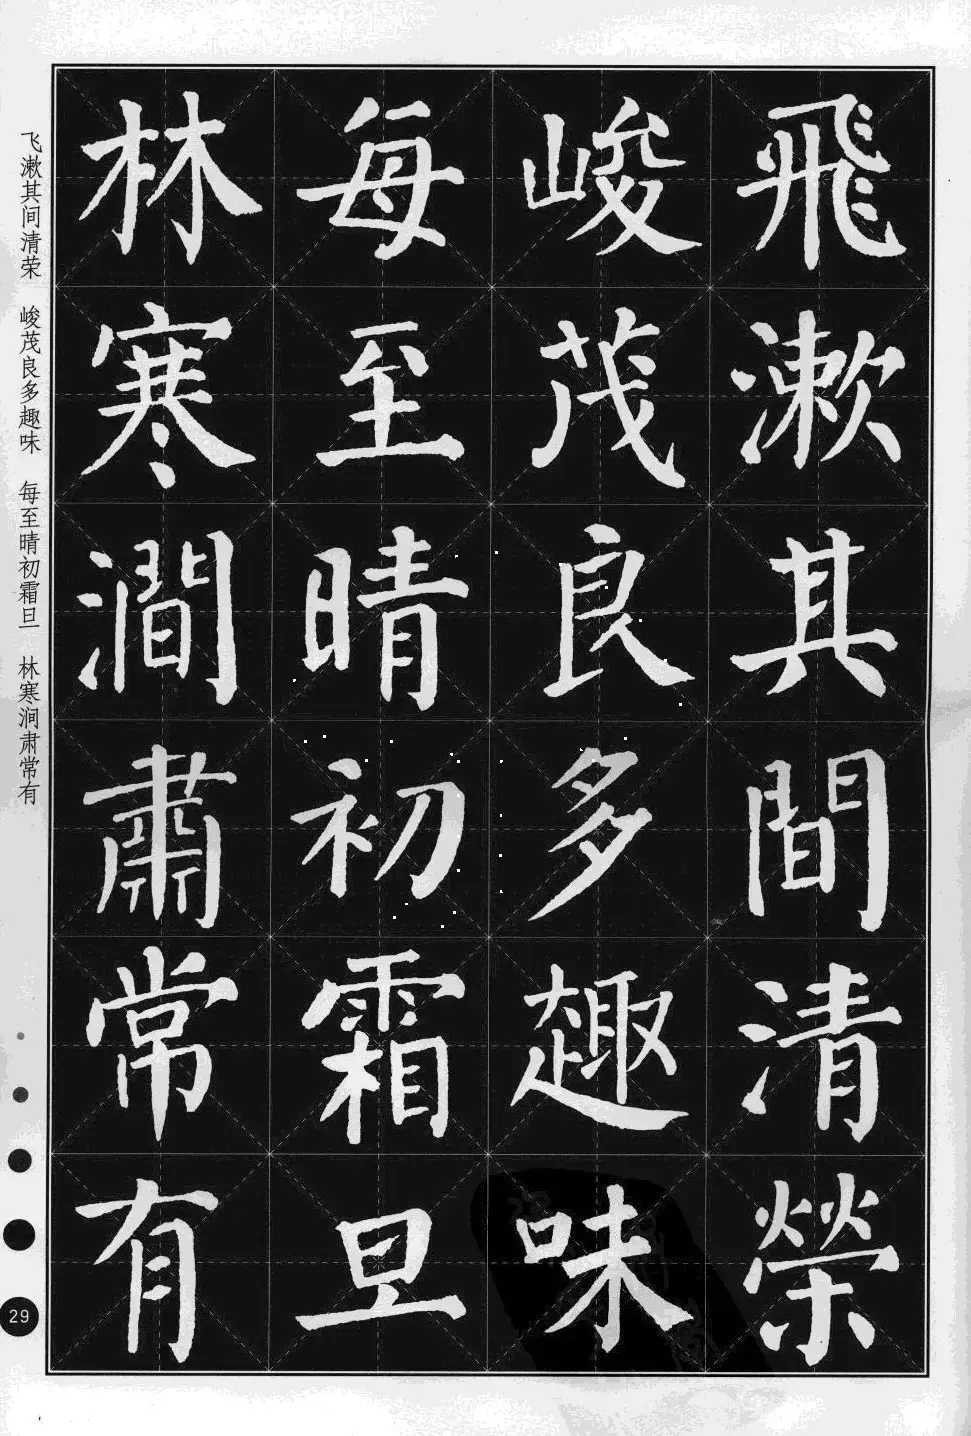 飛漱其間清榮
峻茂良多趣味
每至晴初霜旦
林寒澗肅常有
飞漱其间清荣 峻茂良多趣味 每至晴初霜旦 林寒涧肃常有
29